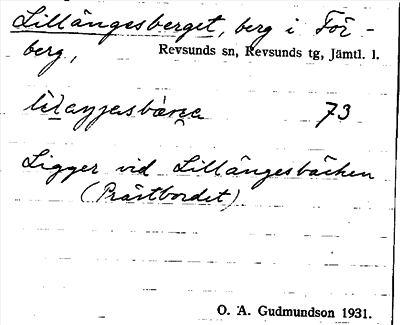 Lillängesberget, berg i För-
berg, Revsunds sn, Revsunds tg, Jämtl. l.
73
Ligger vid Lillängesbäcken
(Prästbordet)
O. A. Gudmundson 1931.